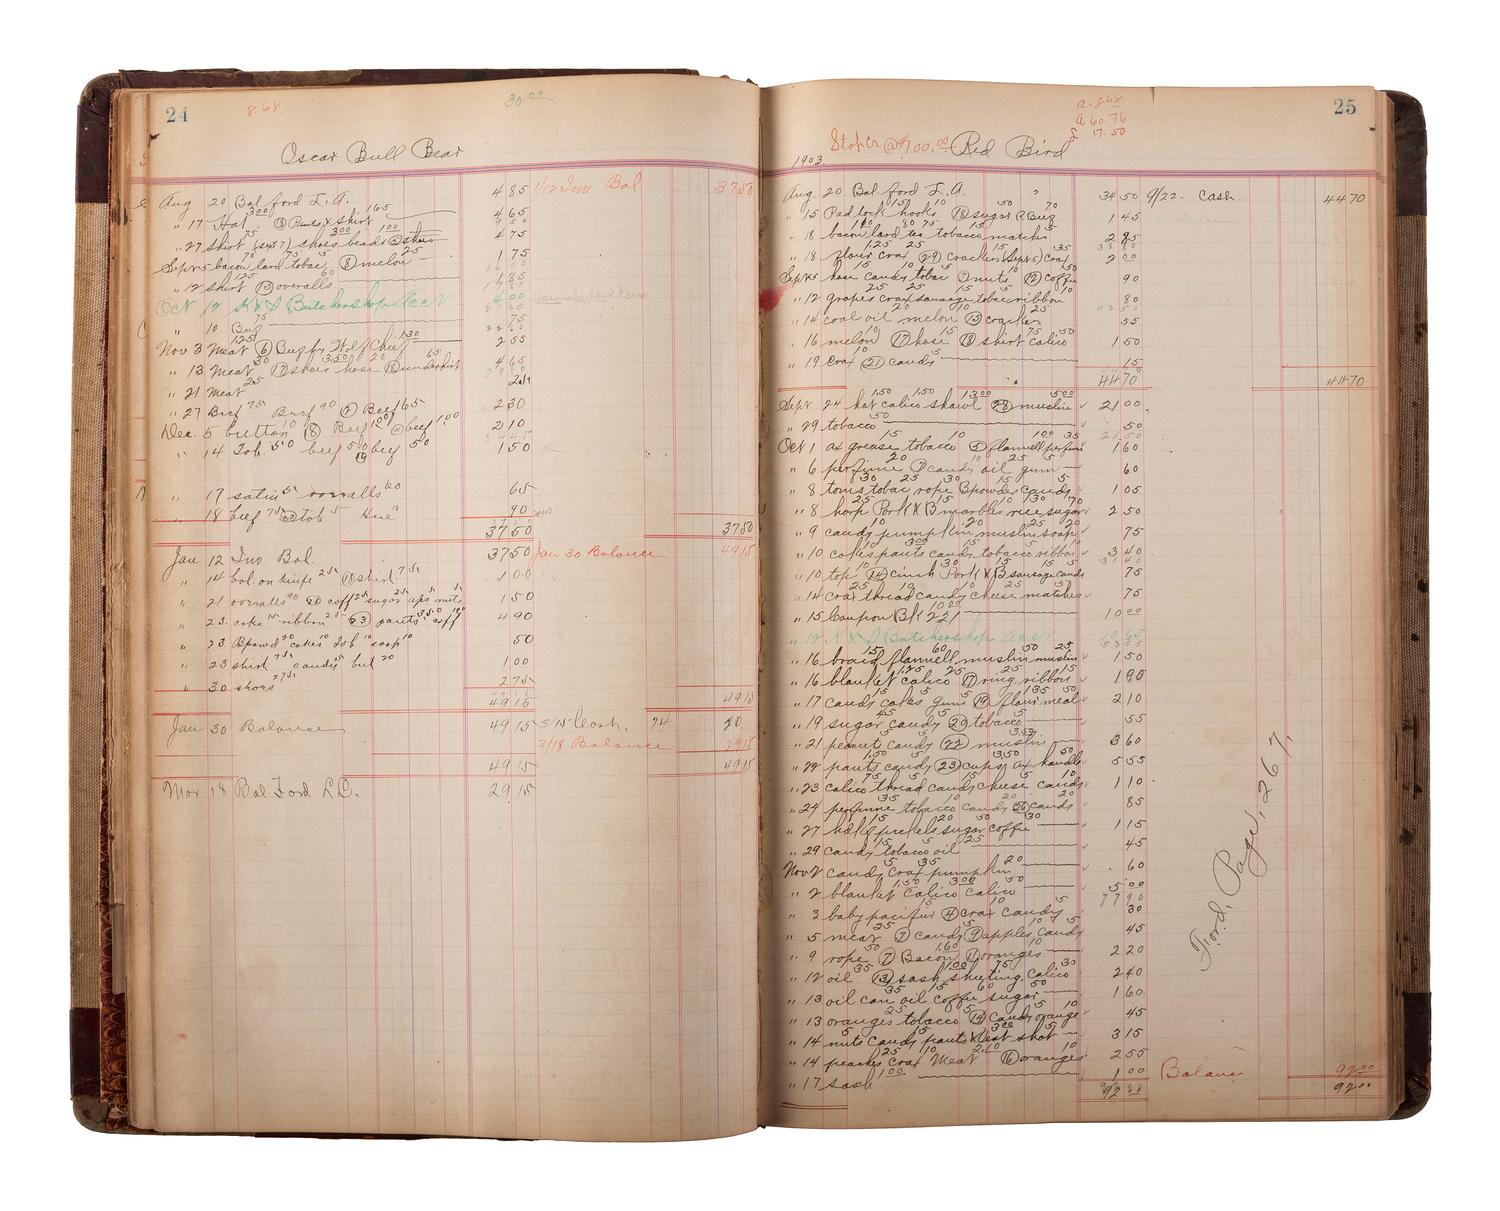 24
8.68
30.00
Oscar Bull Bear
Aug 20 Bal ford L.A. 4 85 1/12 Inv Bal 37 50
" 17 Hat 3.00 (18) Pants X shirt 1.65 4 65
" 27 shirt 75 (Sept 7) shoes 3.00 beads 1.00 4 75
Sept 5 bacon 70 lard 75 tobac 5 (8) melon 25 1 75
" 12 shirt 1.25 (13) overalls 60 1 85
Oct 12 K X D Butchershop acct 4 00
" 10 Bug 75 75
Nov 3 Meat 1.25 (6) Bug by Wolf Chief 1.30 2 55
" 13 Meat 50 (17) shoes 3.50 hose 20 (18) undershirt 65 4 65
" 21 Meat 25 25
" 27 Beef 75 Beef 90 (2) Beef 65 2 30
Dec. 5 button 10 (8) Beef 1.00 (11) beef 1.00 2 10
" 14 Tob. 50 beef 50 (19) beef 50 1 50
" 17 satin 5 overalls 60 65
" 18 beef 75 tob 5 90
37 50 37 50
Jan 12 Inv. Bal. 37 50 Jan 30 Balance 49 15
" 14 bal. on knife 25 shirt 75 1 00
" 21 overalls 90 coff 25 sugar 25 aps nuts 5 1 50
" 23. coke 15 ribbon 25 (23) pants 3.50 coff 4 90
" 23 Bpowd 20 cakes 10 Tob 10 soap 10 50
" 23 shirt 75 candy 5 but 20 1 00
" 30 shoes 2 75 2 75
49 15 49 15
Jan 30 Balance 49 15 3/15 Cash. 74 20
3/18 Balance 29 15
49 15 49 15
Mar 18 Bal Ford L.C. 29 15
25
a. 8 68
a 60 76
17.50
Stop Cr @ $100.00 Red Bird
1903.
Aug. 20 Bal ford L.A. 34 50 9/22. Cash 44 70
" 15 Padlock 15 hooks 10 (18) sugar 50 & Bug 70 1 45
" 18 bacon 1.10 lard 80 tea 75 tobacco 15 matches 5 2 85
" 18 flour 1.25 crax 25 (29) crackers 15 (Sept 5) crax 35 2 00
Sept 5 hose 15 candy 5 tobac 10 (7) nuts 10 (12) coffee 50 90
" 12 grapes 25 crax 25 sausage 15 tobac 5 ribbon 10 80
" 14 coal oil 20 melon 10 (15) crackers 25 55
" 16 melon 10 (17) hose 15 (18) shirt 75 calico 50 1 50
" 19 crax 10 (21) candy 5 15
44 70 44 70
Sept 24 hat 1.50 calico 1.50 shawl 13.00 (28) muslin 5.00 21 00
" 29 tobacco 50 50
Oct 1 ax grease 15 tobacco 10 (5) flannell 1.00 perfume 35 1 60
" 6 perfume 20 (7) candy 10 oil 25 gum 5 60
" 8 toms 30 tobac 25 rope 30 Bpowder 15 candy 5 1 05
" 8 horp 25 Pork X B 1.15 marbles 10 rice 30 sugar 70 2 50
" 9 candy 10 pumpkin 20 muslin 25 soap 20 75
" 10 cakes 10 pants 3.00 candy 5 tobacco 15 ribbon 10 3 40
" 10 top 10 (14) cinch 30 Pork X B 15 sausage 15 candy 5 75
" 14 crax 25 thread 10 candy 10 cheese 25 matches 5 75
" 15 Coupon Bk 221 10.00 10 00
" 12 K X D Butchershop acct 10 65
" 16 braid 15 flannell 60 muslin 50 muslin 25 1 50
" 16 blanket 1.25 calico 25 (17) ring 25 ribbon 15 1 90
" 17 candy 15 cakes 5 gum 5 (19) flour 1.35 meal 50 2 10
" 19 sugar 45 candy 5 (20) tobacco 5 55
" 21 peanut 5 candy 5 (22) muslin 3.50 3 60
" 22 pants 1.50 candy 5 (23) cups 3.50 ax handle 50 5 55
" 23 calico 75 thread 5 candy 15 cheese 5 candy 10 1 10
" 24 perfume 35 tobacco 10 candy 20 (26) candy 20 85
" 27 hdkf 15 pickels 20 sugar 50 coffee 30 1 15
" 29 candy 15 tobacco 5 oil 25 45
Nov 2 candy 5 crax 35 pumpkin 20 60
" 2 blanket 1.50 calico 3.00 calico 50 5 00
" 3 baby pacifier 15 (4) crax 10 candy 5 30
" 5 meat 25 (7) candy 5 (9) apples 10 candy 5 45
" 9 rope 50 (7) Bacon 1.60 (11) oranges 10 2 20
" 12 oil 35 (13) sash 1.00 sheeting 75 calico 30 2 40
" 13 oil can 35 oil 15 coffee 60 sugar 50 1 60
" 13 oranges 25 tobacco 5 (14) candy 5 orange 10 45
" 14 nuts 5 candy 5 pants X vest 3.00 shot 5 3 15
" 14 peaches 25 crax 10 Meat 2.10 (16) oranges 10 2 55
" 17 sash 1.00 1 00 Balance 92.00
92 00 92 00
Ford, Page, 267,